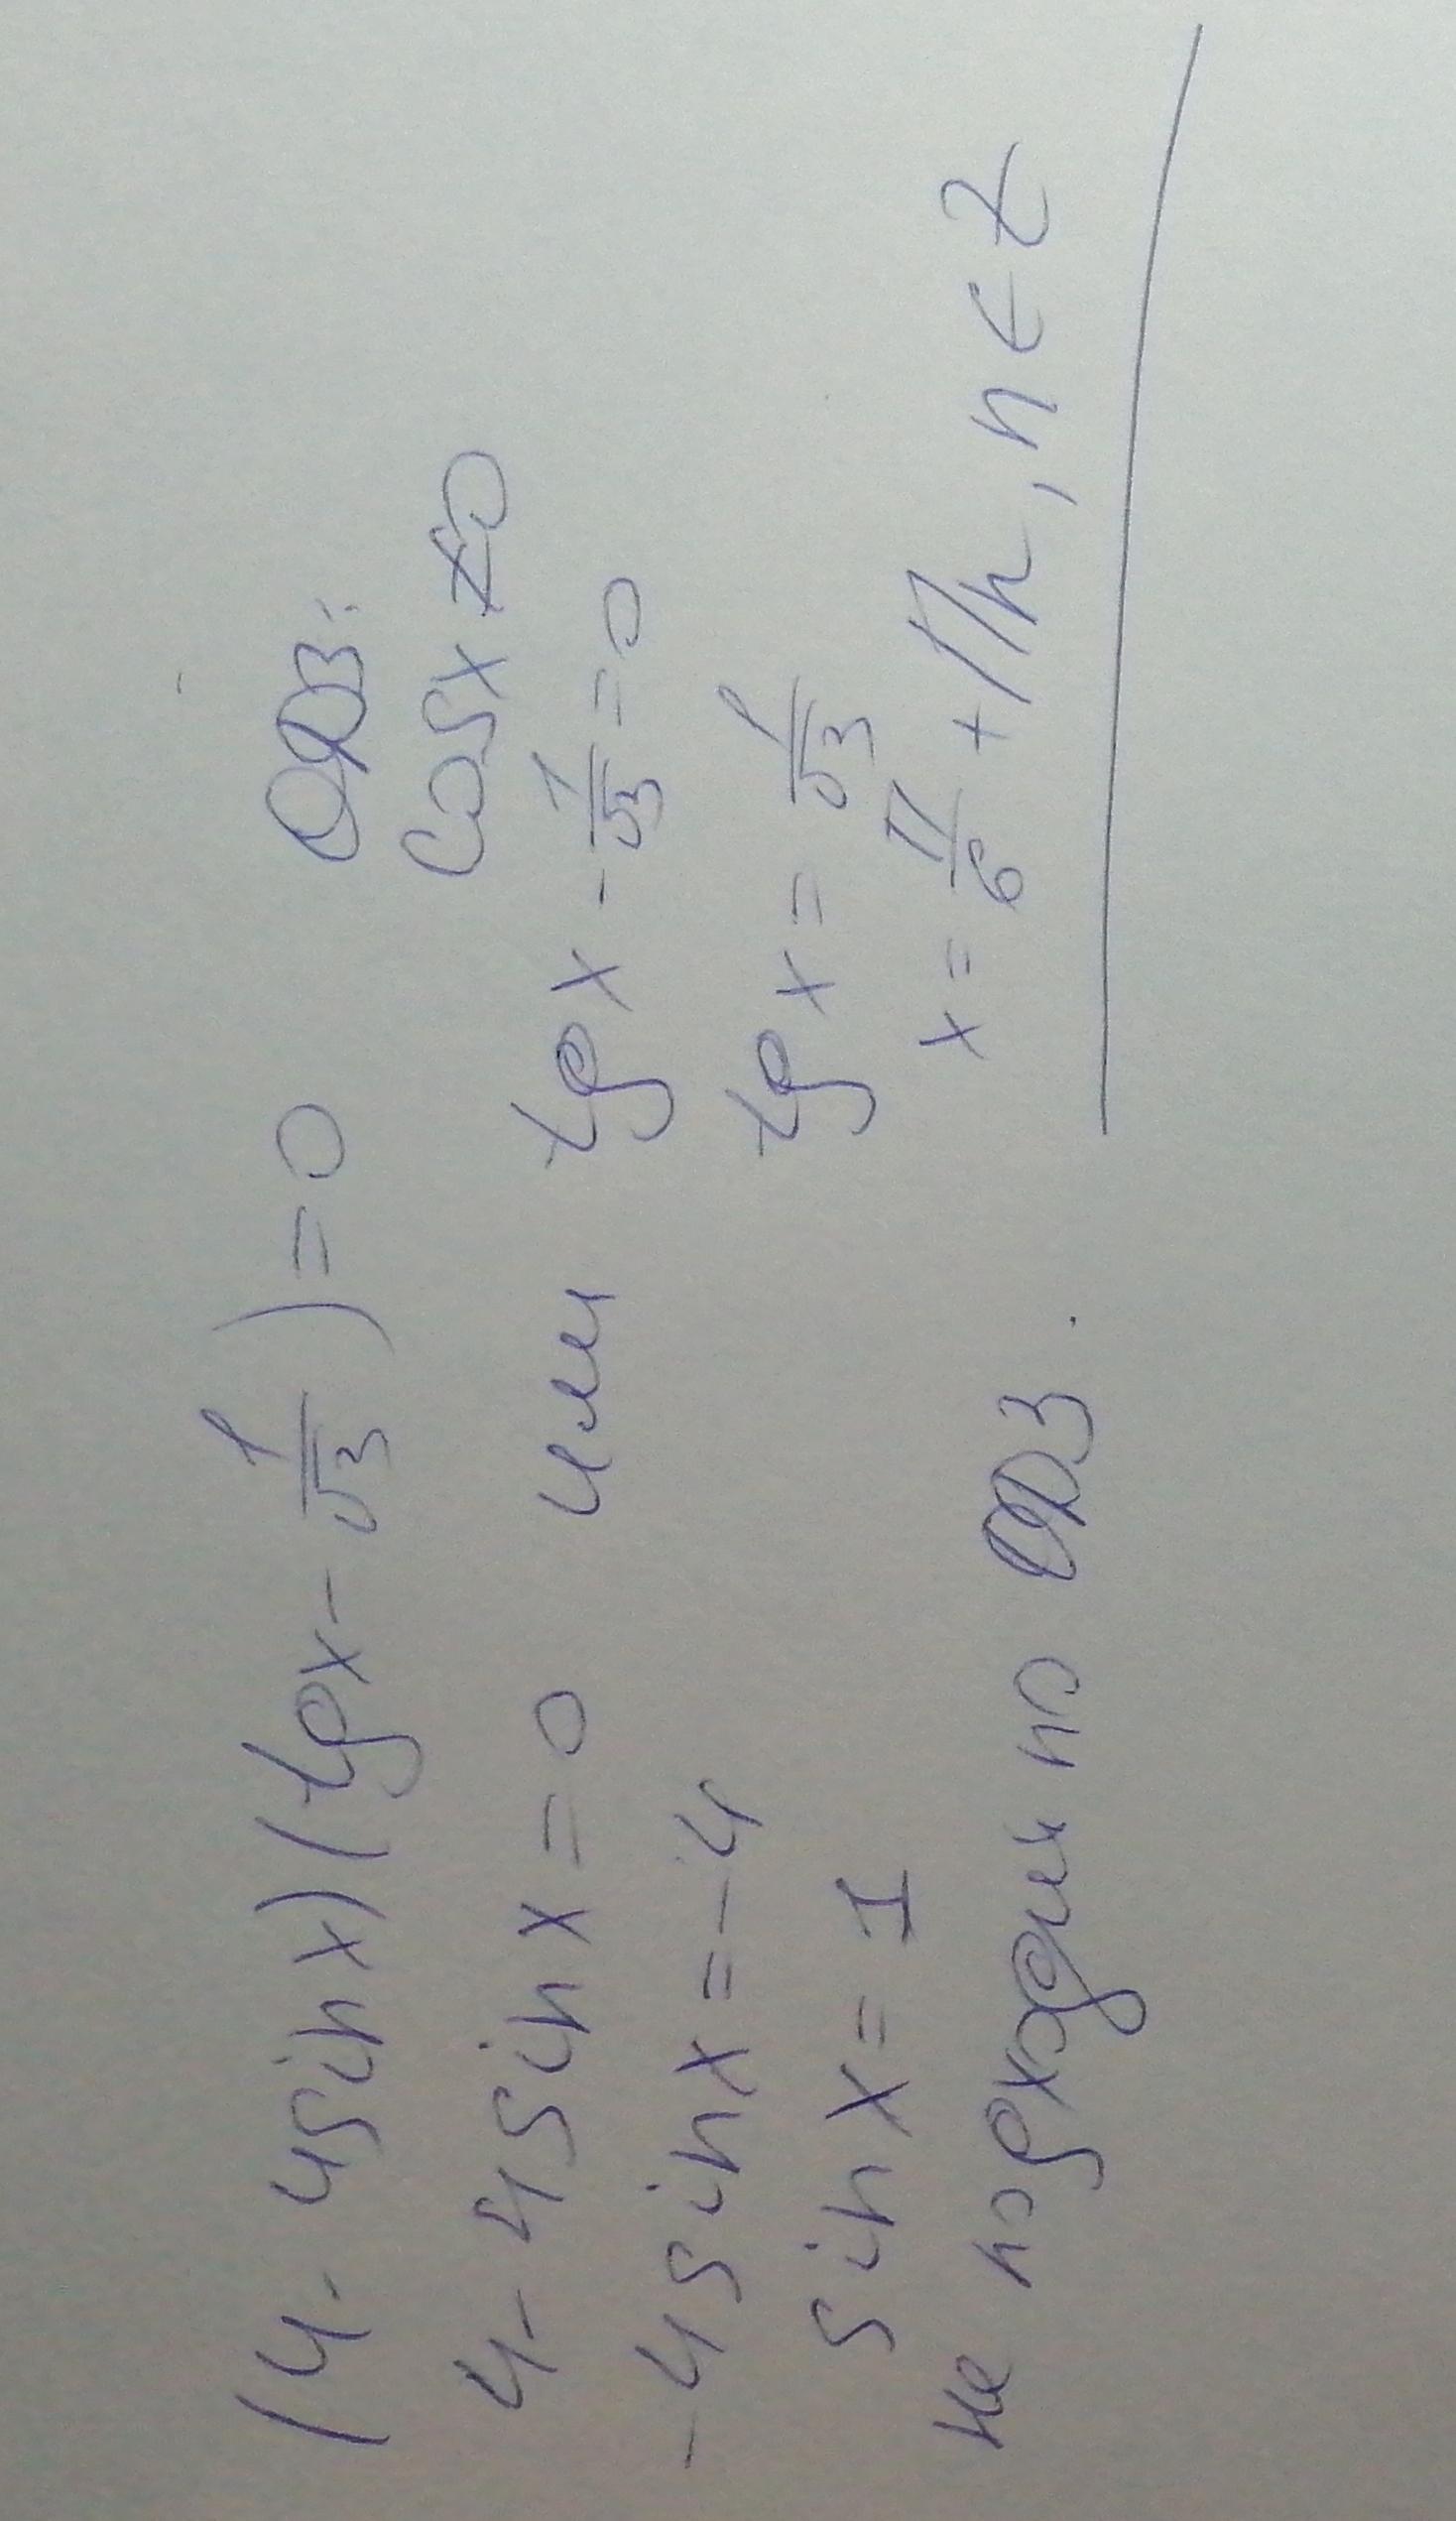 (4 - 4sin x)(tg x - 1/√3) = 0 ОДЗ:
cos x ≠ 0
4 - 4 sin x = 0 или tg x - 1/√3 = 0
-4 sin x = -4 tg x = 1/√3
sin x = 1 x = π/6 + πn, n ∈ Z
не подходит по ОДЗ.